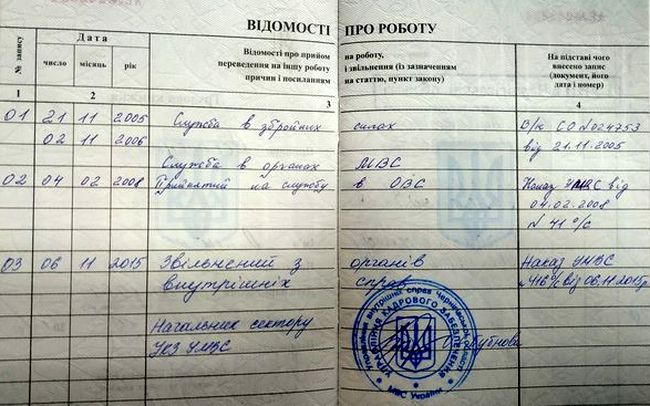 ВІДОМОСТІ ПРО РОБОТУ
№ запису
Дата
число
місяць
рік
Відомості про прийом
переведення на іншу роботу
причин і посиланням
на роботу,
і звільнення (із зазначенням
на статтю, пункт закону)
На підставі чого
внесено запис
(документ, його
дата і номер)
1 2 3 4
01 21 11 2005 Служба в збройних силах В/к СО №024753
02 11 2006 від 21.11.2005
Служба в органах МВС
02 04 02 2008 Прийнятий на службу в ОВС Наказ УМВС від
04.02.2008
№ 41 о/с
03 06 11 2015 Звільнений з органів Наказ УМВС
внутрішніх справ №416 о/с від 06.11.2015р
Начальник сектору
УКЗ УМВС
УПРАВЛІННЯ КАДРОВОГО ЗАБЕЗПЕЧЕННЯ
МВС України